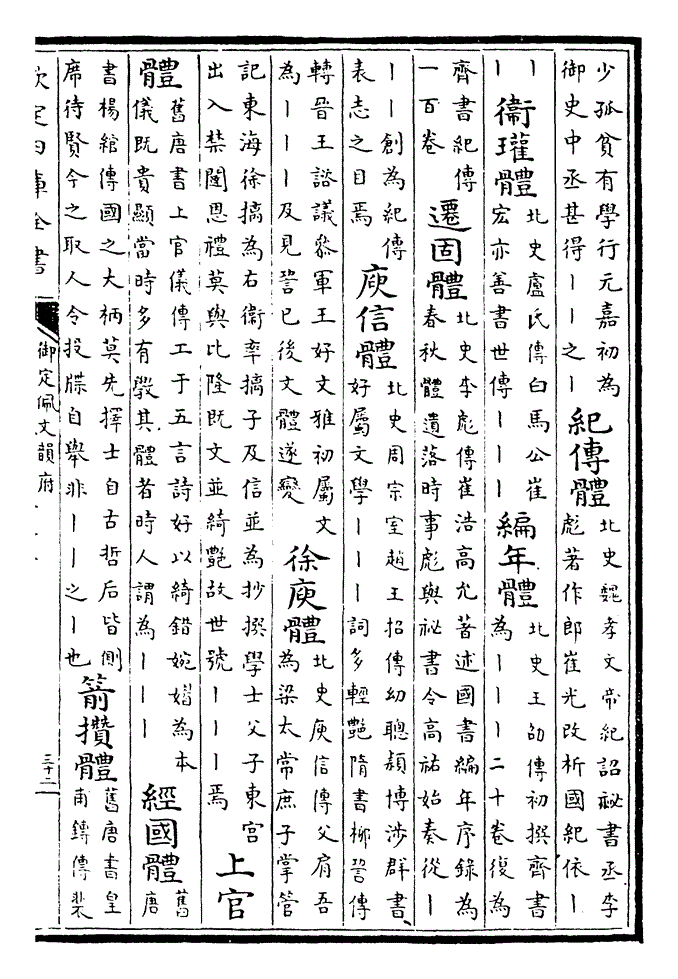 少孤貧有學行元嘉初為
御史中丞甚得丨丨之丨
紀傳體
北史魏孝文帝紀詔祕書丞李
彪著作郎崔光改析國紀依丨
丨
丨
衞瓘體
北史盧氏傳白馬公崔
宏亦善書世傳丨丨丨
編年體
北史王劭傳初撰齊書
為丨丨丨二十卷復為
齊書紀傳
一百卷
遷固體
北史李彪傳崔浩高允著述國書編年序錄為
春秋體遺落時事彪與祕書令高祐始奏從丨
丨丨創為紀傳
表志之目焉
庾信體
北史周宗室趙王招傳幼聰穎博涉群書
好屬文學丨丨丨詞多輕艷隋書柳䛒傳
轉晉王諮議參軍王好文雅初屬文
為丨丨丨及見䛒已後文體遂變
徐庾體
北史庾信傳父肩吾
為梁太常庶子掌管
記東海徐摛為右衞率摛子及信並為抄撰學士父子東宮
出入禁闥恩禮莫與比隆既文並綺艷故世號丨丨丨焉
上官
體
舊唐書上官儀傳工于五言詩好以綺錯婉媚為本
儀既貴顯當時多有斆其體者時人謂為丨丨丨
經國體
舊
唐
書楊綰傳國之大柄莫先擇士自古哲后皆側
席待賢今之取人令投牒自舉非丨丨之丨也
箭攢體
舊唐書皇
甫鎛傳裴
欽定四庫全書
御定佩文韻府
三十二